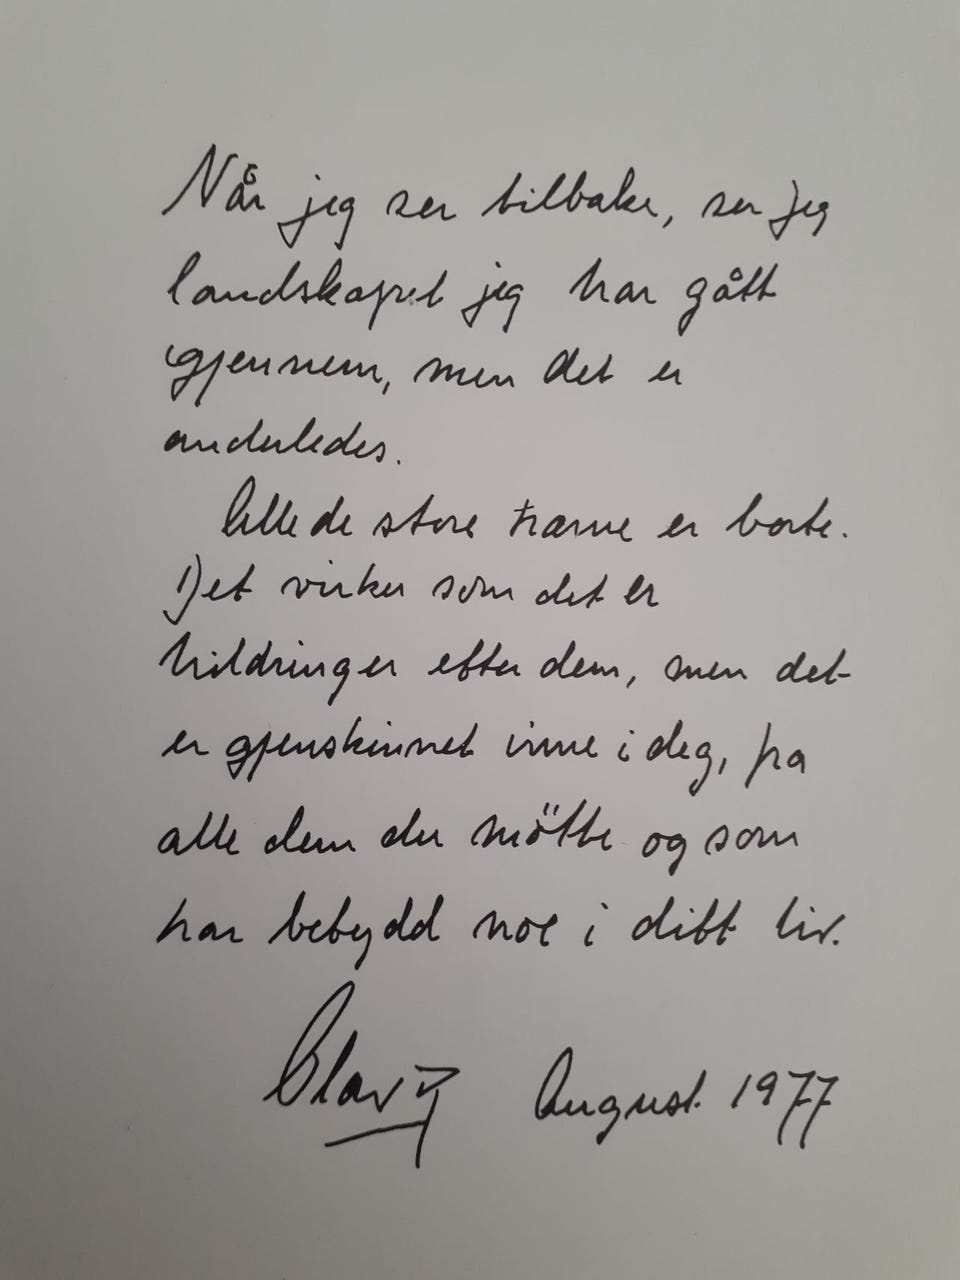 Når jeg ser tilbake, ser jeg
landskapet jeg har gått
gjennem, men det er
anderledes.
Alle de store trærne er borte.
Det virker som det er
hildringer efter dem, men det
er gjenskinnet inne i deg, fra
alle dem du mötte og som
har betydd noe i ditt liv.
Olav R August 1977